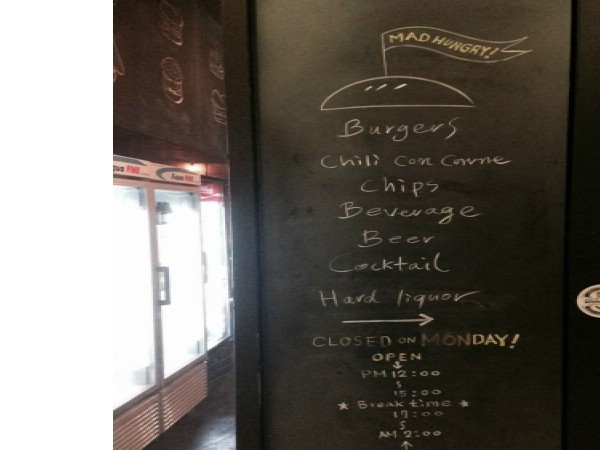 MAD HUNGRY!
Burgers
Chili Con Carne
Chips
Beverage
Beer
Cocktail
Hard liquor
CLOSED ON MONDAY!
OPEN
PM 12:00
15:00
★ Break time ★
17:00
AM 2:00
Aqua PINK